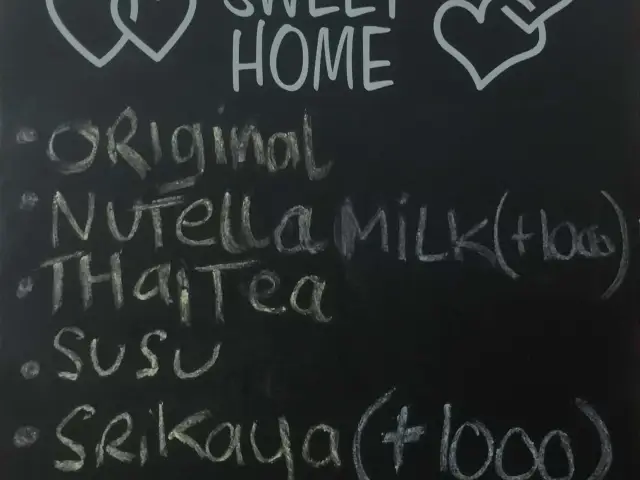 SWEET
HOME
• ORiginaL
• NUTella MiLK (+1000)
• THaiTea
• SUSU
• SRiKaya (+1000)